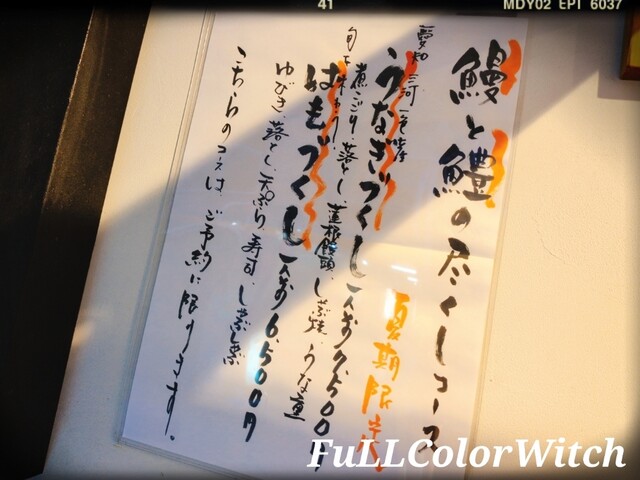 41
MDY02 EPI 6037
鰻と鱧の尽くしコース
夏期限定
愛知 三河一色産
うなぎづくし 一人前 7,500円
煮こごり、落とし、蓮根饅頭、しぶ焼、うな重
旬を味わう
はもづくし 一人前 6,500円
ゆびき、落とし、天ぷら、寿司、しゃぶしゃぶ
こちらのコースは、ご予約に限ります。
FuLLColorWitch